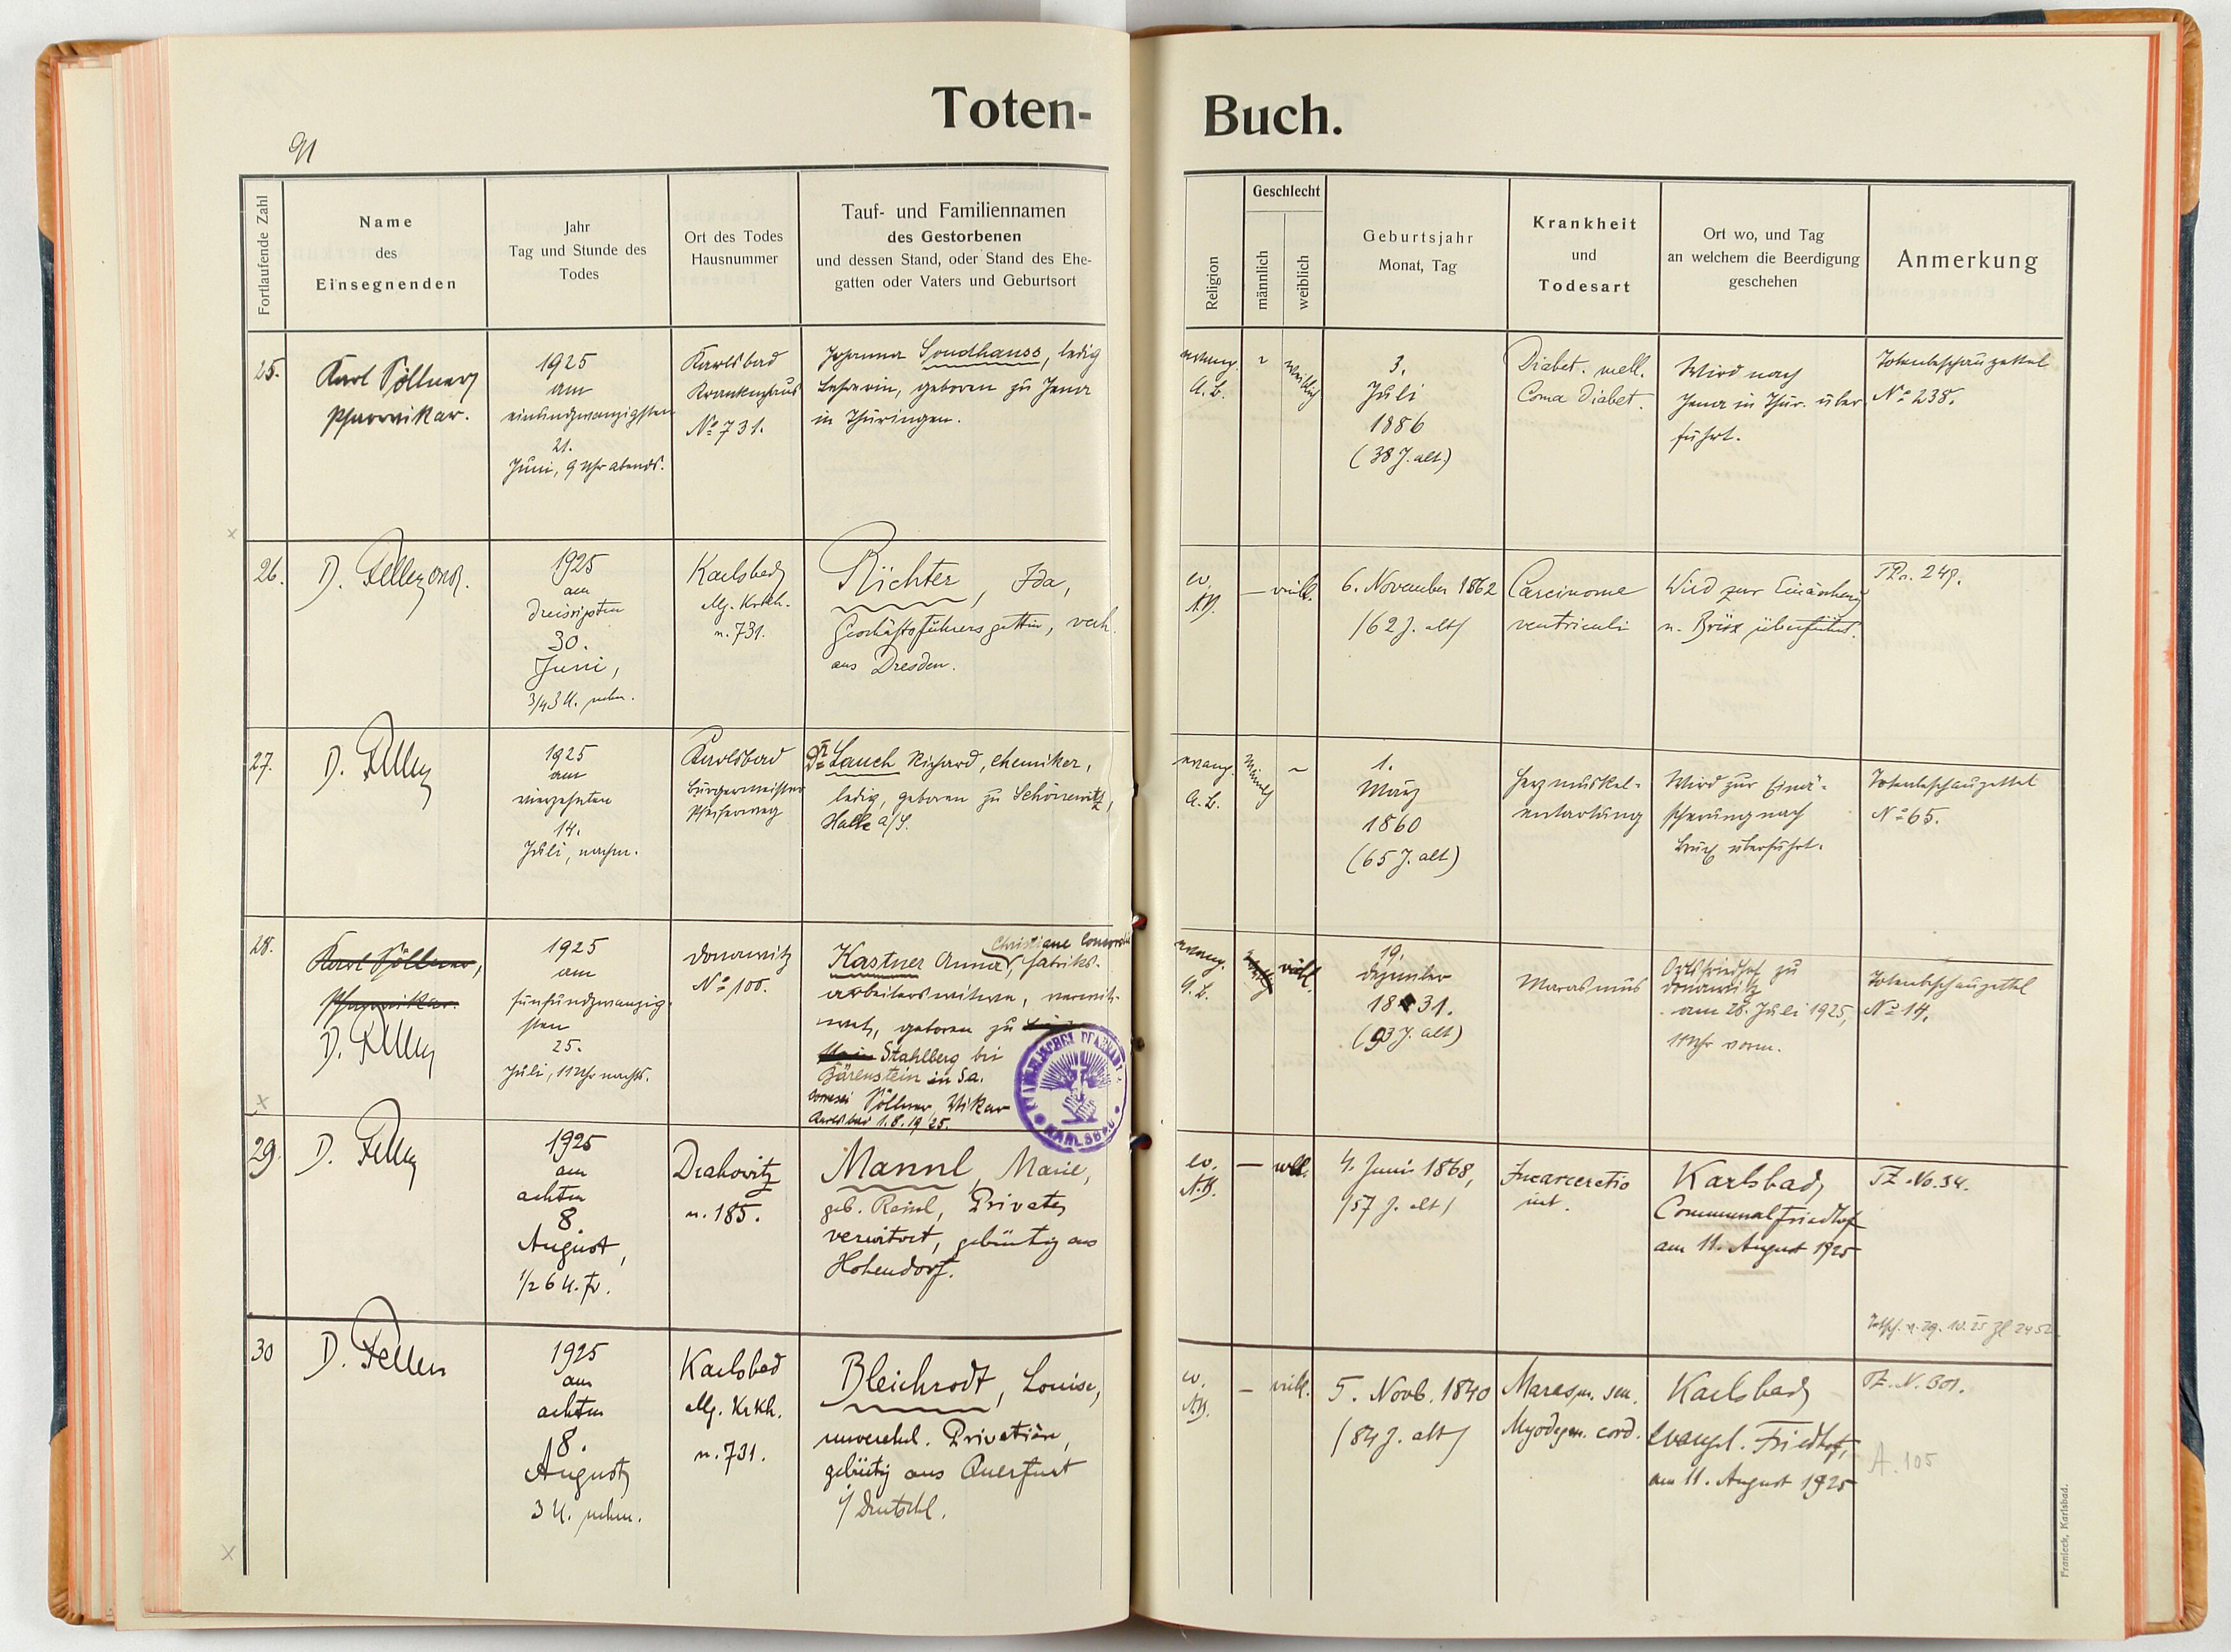 Toten-
Buch.
91
Fortlaufende Zahl
Name
des
Einsegnenden
Jahr
Tag und Stunde des
Todes
Ort des Todes
Hausnummer
Tauf- und Familiennamen
des Gestorbenen
und dessen Stand, oder Stand des Ehe-
gatten oder Vaters und Geburtsort
Religion
Geschlecht
männlich
weiblich
Geburtsjahr
Monat, Tag
Krankheit
und
Todesart
Ort wo, und Tag
an welchem die Beerdigung
geschehen
Anmerkung
25.
Karl Söllner,
Pfarrvikar.
1925
am
einundzwanzigsten
21.
Juni, 9 Uhr abends.
Karlsbad
Krankenhaus
No 731.
Johanna Sondhauss, ledig
Lehrerin, geboren zu Jena
in Thüringen.
evang.
A.B.
weiblich
3.
Juli
1886
(38 J. alt)
Diabet. mell.
Coma diabet.
Wird nach
Jena in Thür. über
führt.
Totenbeschauzettel
No 238.
26.
1925
am
dreissigsten
30.
Juni,
3/4 3 U. nchm.
Karlsbad,
Allg. Krkh.
n. 731.
Richter, Ida,
Geschäftsführersgattin, verh.
aus Dresden.
ev.
A.B.
— weibl.
6. November 1862
/62 J. alt/
Carcinome
ventriculi
Wird zur Einäscherg
n. Brüx überführt.
249.
27.
1925
am
vierzehnten
14.
Juli, nachm.
Karlsbad
Bürgermeister
Dr. Lauch Richard, Chemiker,
ledig, geboren zu
Halle a/S.
evang.
A.B.
männlich
1.
März
1860
(65 J. alt)
Herzmuskel-
entartung
Wird zur Einä-
scherung nach
Brüx überführt.
Totenbeschauzettel
No 65.
28.
Karl Söllner,
Pfarrvikar.
1925
am
fünfundzwanzig-
sten
25.
Juli, 11 Uhr nachts.
Donawitz
No 100.
Christiane
Kastner Anna, Fabriks-
arbeiterswitwe, verwit-
wet, geboren zu
Stahlberg bei
Bärenstein in Sa.
Söllner, Vikar
Karlsbad 1.8.1925.
KARLSBAD
evang.
A.B.
weibl.
19.
Dezember
1831.
(93 J. alt)
Marasmus
Ortsfriedhof zu
Donawitz
am 28. Juli 1925,
11 Uhr vorm.
Totenbeschauzettel
No 14.
29.
1925
am
achten
8.
August,
1/2 6 U. fr.
Drahowitz
n. 185.
Mannl, Marie,
geb. Private,
verwitwet, gebürtig aus
Hohendorf.
ev.
A.B.
— weibl.
4. Juni 1868,
/57 J. alt/
Incarceratio
int.
Karlsbad,
Communalfriedhof
am 11. August 1925
TZ. No. 34.
30
1925
am
achten
8.
August,
3 U. nchm.
Karlsbad
Allg. Krkh.
n. 731.
Bleichrodt, Louise,
unverehel. Privatière,
gebürtig aus Querfurt
i/ Deutschl.
ev.
A.B.
— weibl.
5. Novb. 1840
/84 J. alt/
Marasm. sen.
Myodegen. cord.
Karlsbad,
evangel. Friedhof,
am 11. August 1925
TZ. N. 301.
A. 105
Franieck, Karlsbad.